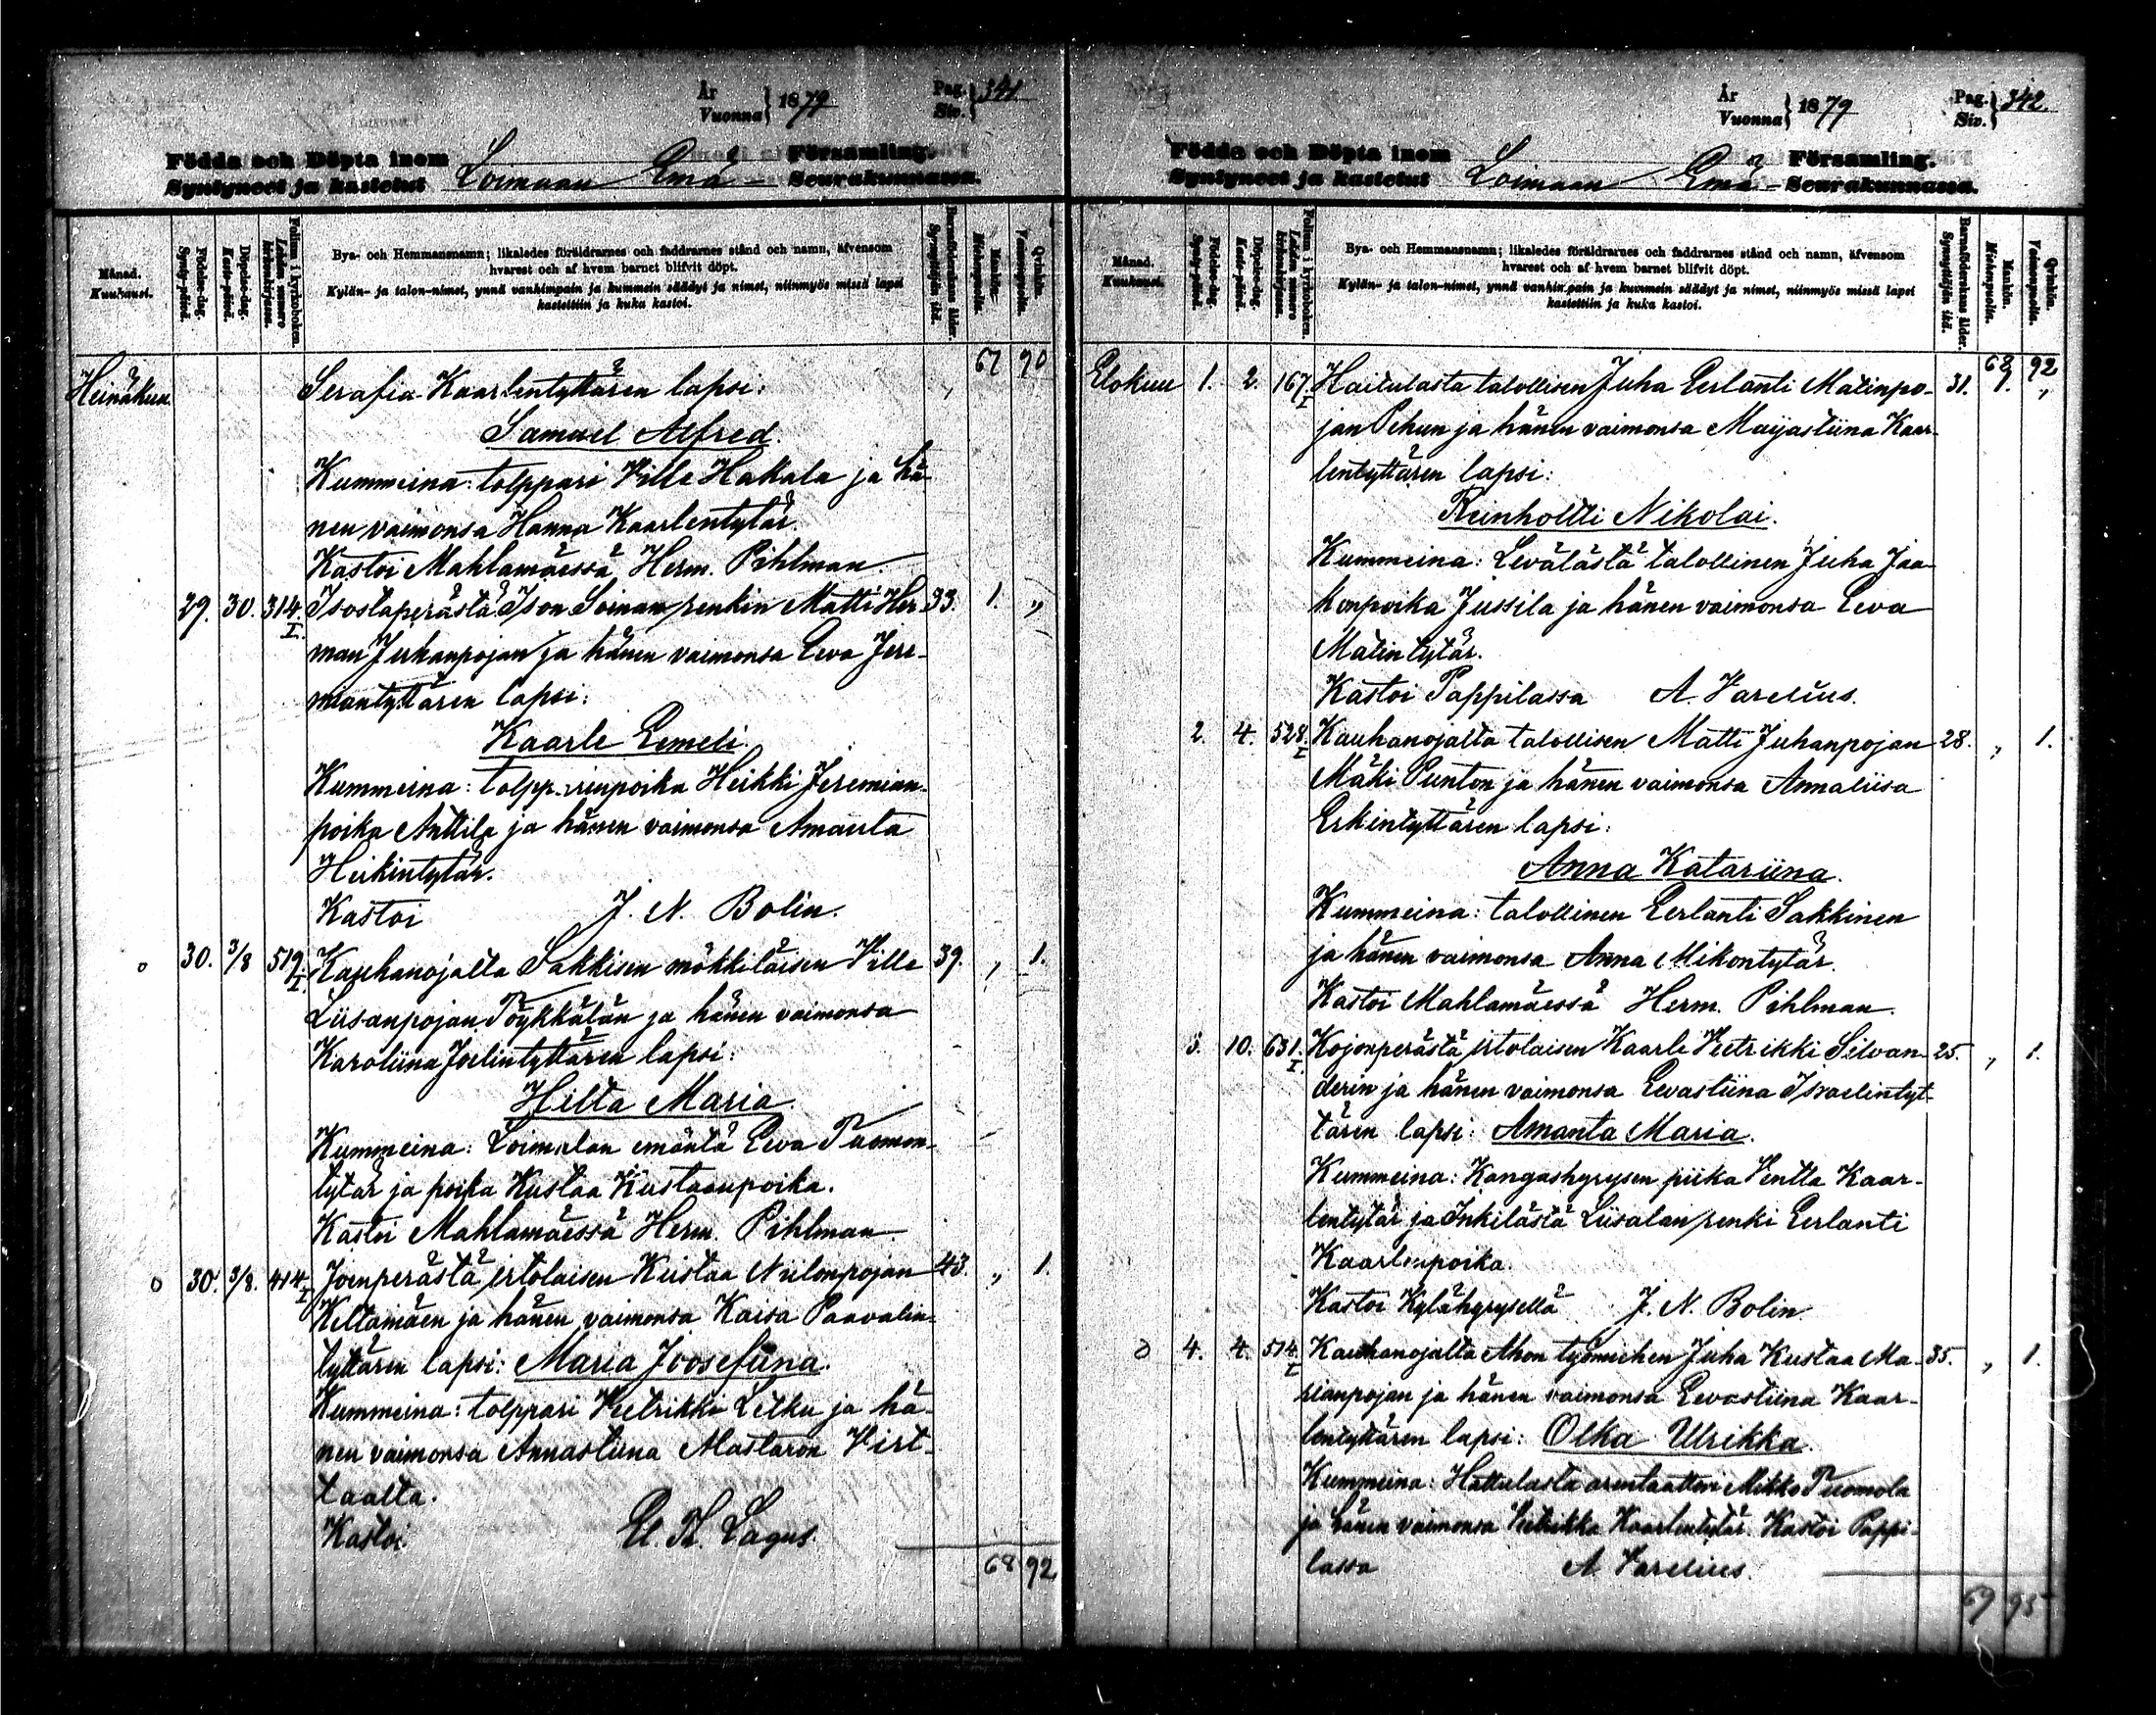 År
Vuonna } 1879
Pag.
Siv. } 341
Födda och Döpta inom
Syntyneet ja kastetut Loimaan Emä- Församling.
Seurakunnassa.
Månad.
Kuukausi.
Födelse-dag.
Synty-päivä.
Döpelse-dag.
Kaste-päivä.
Folium i kyrkoboken.
Lehden numero kirkonkirjassa.
Bya- och Hemmansnamn; likaledes föräldrarnes och faddrarnes stånd och namn, äfvensom
hvarest och af hvem barnet blifvit döpt.
Kylän- ja talon-nimet, ynnä vanhimpain ja kummein säädyt ja nimet, niinmyös missä lapsi
kastettiin ja kuka kastoi.
Barnföderskans ålder.
Synnyttäjän ikä.
Mankön.
Miehenpuolia.
Qvinkön.
Vaimonpuolia.
67 90
Heinäkuu Serafia Kaarlentyttären lapsi:
Samuel Alfred.
Kummeina: tolppari Ville Hakala ja hä-
nen vaimonsa Hanna Kaarlentytär.
Kastoi Mahlamäessä Herm. Pihlman
29. 30. 314. I. Isostaperästä Ison Soinan renkin Matti Her- 33. 1. „
man Juhanpojan ja hänen vaimonsa Eeva Jere-
miantyttären lapsi:
Kaarle Eemeli.
Kummeina: tolpparinpoika Heikki Jeremian-
poika Anttila ja hänen vaimonsa Amanta
Heikintytär.
Kastoi J. N. Bolin.
o 30. 3/8 519. I. Kauhanojalta Sakkisen mökkiläisen Ville 39. „ 1.
Liisanpojan Töykkälän ja hänen vaimonsa
Karoliina Joelintyttären lapsi:
Hilta Maria.
Kummeina: Loimalan emäntä Eeva Tuomon-
tytär ja poika Kustaa Kustaanpoika.
Kastoi Mahlamäessä Herm. Pihlman
o 30. 3/8. 414. I Joenperästä irtolaisen Kustaa Niilonpojan 43. „ 1.
Keltamäen ja hänen vaimonsa Kaisa Paavalin-
tyttären lapsi: Maria Joosefiina.
Kummeina: tolppari Veetrikki Letku ja hä-
nen vaimonsa Annastiina Mastaron Virt-
taalta.
Kastoi
68 92
År
Vuonna } 1879
Pag.
Siv. } 342.
Födda och Döpta inom
Syntyneet ja kastetut Loimaan Emä- Församling.
Seurakunnassa.
Månad.
Kuukausi.
Födelse-dag.
Synty-päivä.
Döpelse-dag.
Kaste-päivä.
Folium i kyrkoboken.
Lehden numero kirkonkirjassa.
Bya- och Hemmansnamn; likaledes föräldrarnes och faddrarnes stånd och namn, äfvensom
hvarest och af hvem barnet blifvit döpt.
Kylän- ja talon-nimet, ynnä vanhimpain ja kummein säädyt ja nimet, niinmyös missä lapsi
kastettiin ja kuka kastoi.
Barnföderskans ålder.
Synnyttäjän ikä.
Mankön.
Miehenpuolia.
Qvinkön.
Vaimonpuolia.
68 92
Elokuu 1. 2. 167. I Haitulasta talollisen Juha Eerlanti Matinpo- 31. 1. „
jan Pehun ja hänen vaimonsa Maijastiina Kaar-
lentyttären lapsi:
Reinholtti Nikolai.
Kummeina: Levälästä talollinen Juha Jaa-
konpoika Jussila ja hänen vaimonsa Eeva
Matintytär.
Kastoi Pappilassa A. Varelius.
2. 4. 528. I Kauhanojalta talollisen Matti Juhanpojan 28. „ 1.
Mäki Punton ja hänen vaimonsa Annaliisa
Erkintyttären lapsi:
Anna Katariina.
Kummeina: talollinen Eerlanti Sakkinen
ja hänen vaimonsa Anna Mikontytär.
Kastoi Mahlamäessä Herm. Pihlman.
3. 10. 631. I. Kojonperästä irtolaisen Kaarle Veetrikki Silvan- 25. „ 1.
derin ja hänen vaimonsa Eevastiina Israelintyt-
tären lapsi: Amanta Maria.
Kummeina: Kangashyrysen piika Ventla Kaar-
lentytär ja Inkilästä Liisalan renki Eerlanti
Kaarlenpoika.
Kastoi Kylähyrysellä J. N. Bolin.
o 4. 4. 514. I Kauhanojalta Ahon työmiehen Juha Kustaa Ma- 35. „ 1.
rianpojan ja hänen vaimonsa Eevastiina Kaar-
lentyttären lapsi: Olka Ulrikka.
Kummeina: Hattulasta arentaattori Mikko Tuomola
ja hänen vaimonsa Veetrikka Kaarlentytär. Kastoi Pappi-
lassa A. Varelius.
69 95